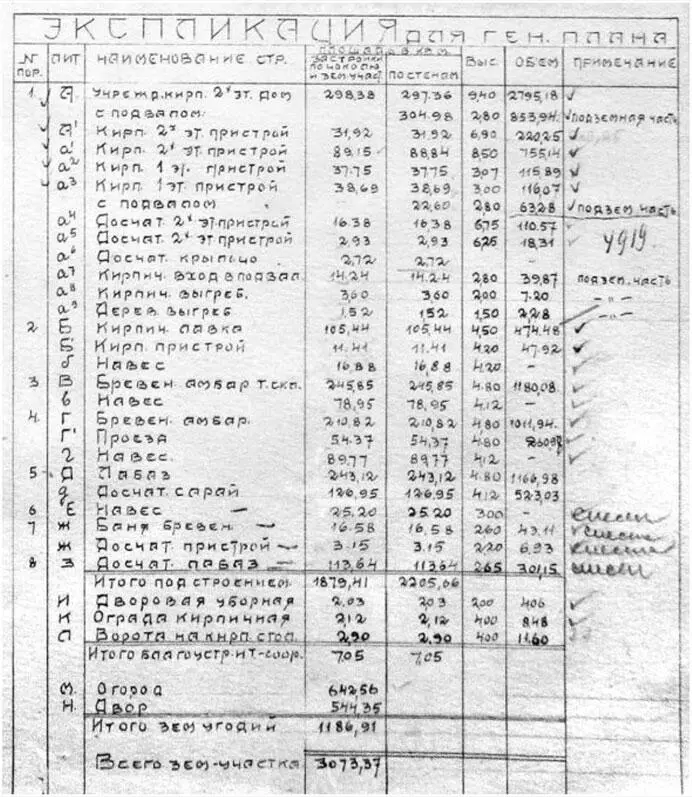 ЭКСПЛИКАЦИЯ для ГЕН. ПЛАНА
№ ПОР. ЛИТ НАИМЕНОВАНИЕ СТР. ПЛОЩАДЬ В КВ.М. ЗАСТРОЙКИ ПО ЦОКОЛЮ И ЗЕМ.УЧАСТ. ПО СТЕНАМ ВЫС. ОБЪЕМ ПРИМЕЧАНИЕ
1. А. Учрежд. кирп. 2х эт. дом 298.38 297.36 9,40 2795,18
с подвалом. 304.98 2,80 853,94 подземная часть
А' Кирп. 2х эт. пристрой 31,92 31.92 6,90 220,25
а' Кирп. 2х эт. пристрой 89,15 88,84 8,50 755,14
а2 Кирп. 1 эт. пристрой 37.75 37.75 3,07 115,89
а3 Кирп. 1 эт. пристрой 38,69 38,69 3,00 116,07
с подвалом 22,60 2,80 63.28 подзем. часть
а4 Досчат. 2х эт. пристрой 16.38 16,38 6,75 110.57
а5 Досчат. 2х эт. пристрой 2,93 2,93 6,25 18,31 4919.
а6 Досчат. крыльцо 2,72 2,72 -
а7 Кирпич. вход в подвал. 14.24 14.24 2,80 39,87 подзем. часть
а8 Кирпич. выгреб. 3,60 3,60 2,00 7.20 -"-
а9 Дерев. выгреб 1,52 1,52 1,50 2,28 -"-
2 Б Кирпич. лавка 105,44 105,44 4,50 474.48
Б' Кирп. пристрой 11.41 11.41 4.20 47.92
б Навес 16,88 16,88 4.20 -
3 В Бревен. амбар т. скл. 245,85 245,85 4.80 1180,08.
в Навес 78,95 78,95 4,12 -
4. Г Бревен. амбар. 210,82 210,82 4,80 1011,94.
Г' Проезд 54.37 54,37 4.80
г Навес. 89,77 89,77 4,12 -
5 Д Лабаз 243,12 243,12 4.80 1166,98
д Досчат. сарай 126,95 126,95 4,12 523,03
6 Е Навес — 25,20 25.20 3,00 - снесен
7 Ж Баня бревен — 16.58 16,58 2,60 43.11 снесена
ж Досчат. пристрой — 3.15 3.15 2,20 6,93 снесены
8 З Досчат. лабаз — 113,64 113,64 2,65 301,15 снесен
Итого под строением. 1879,41 2205,66
И Дворовая уборная 2.03 2,03 2,00 4,06
К Ограда кирпичная 2,12 2,12 4,00 8,48
Л Ворота на кирп. стол. 2,90 2.90 4,00 11,60
Итого благоустр. ит-соор. 7,05 7,05
М. Огород 642,56
Н. Двор 544,35
Итого зем. угодий 1186,91
Всего зем-участка 3073,37